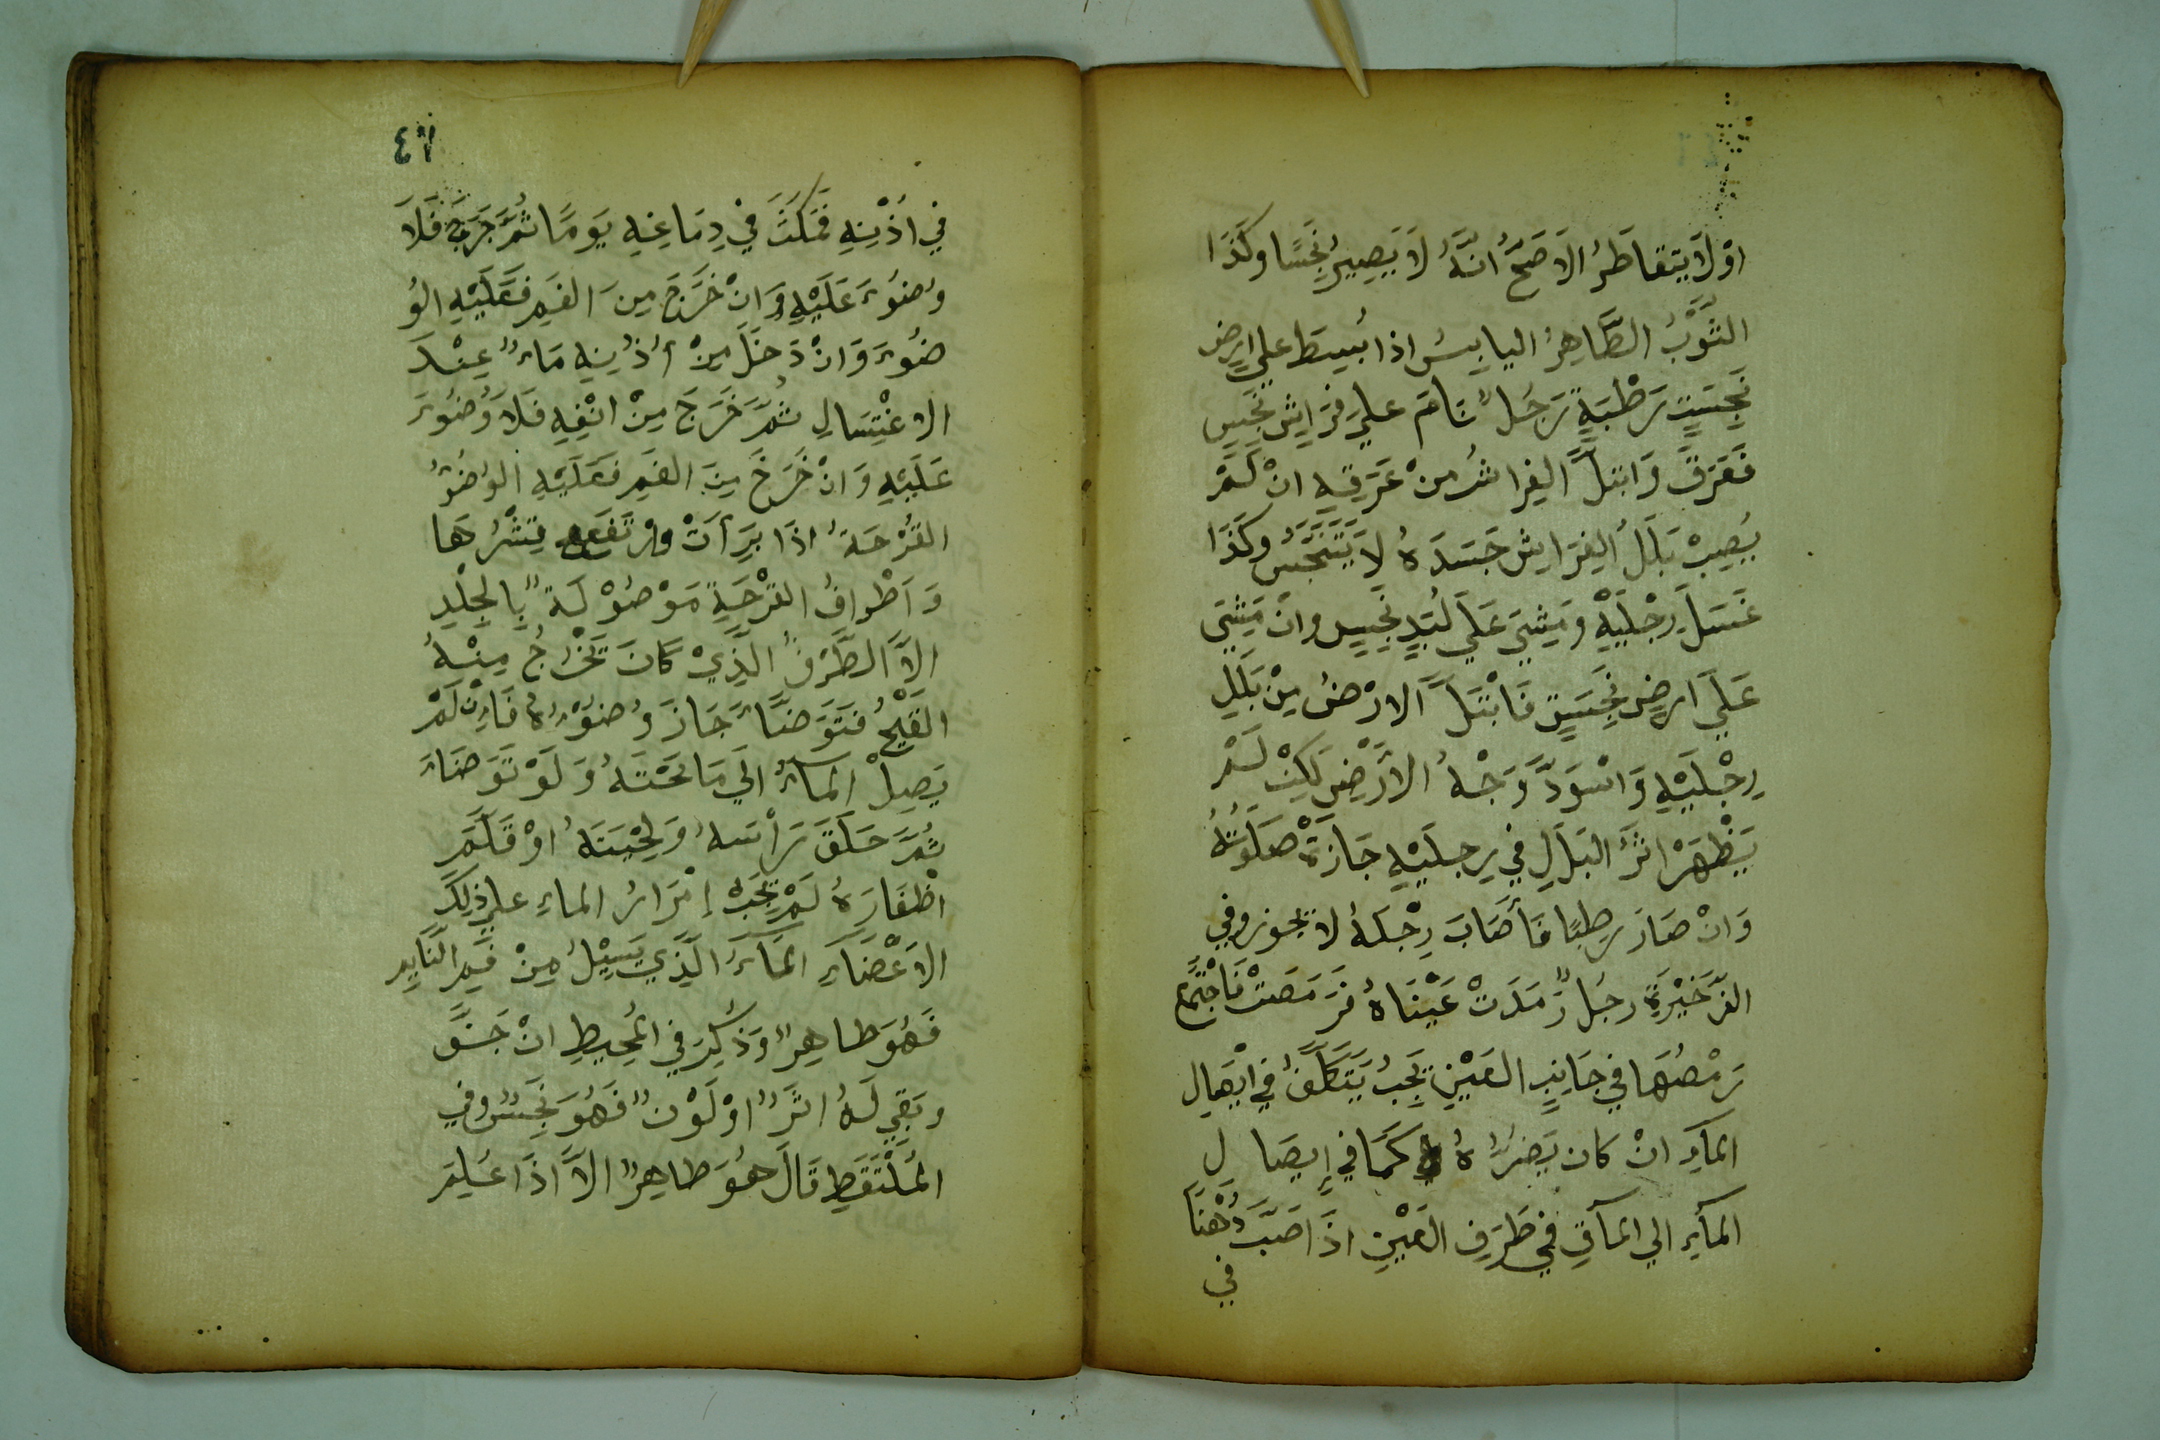 اَوْ لَا يَتَقاطَرُ الَاصَحُّ اَنَّهُ لَا يَصِيرُ نَجِسًا وكَذَا
الثَّوْبُ الطَّاهِرُ اليابِسُ اذا بُسِطَ علي ارضٍ
نَجِسَةٍ رَطْبَةٍ رَجُلٌ نَامَ علي فِرَاشٍ نَجِسٍ
فَعَرَقَ وَابْتَلَّ الفِراشُ منْ عَرَقِهِ انْ لَمْ
يُصِبْ بَلَلُ الفِرَاشِ جَسَدَهُ لَا يَتَنَجَّسُ وكَذَا
غَسَلَ رِجْلَيْهِ وَمَشِيَ عَلَي لُبَدٍ نَجِسٍ وانْ مَشِيَ
عَلَي ارضٍ نَجِسَةٍ فَابْتَلَّ الارْضُ مِنْ بَلَلِ
رِجْلَيْهِ وَاسْوَدَّ وَجْهُ الاَرْضِ لكِنْ لَمْ
يَظْهَرْ اثَرُ البَلَلِ في رِجلَيْهِ جَازَتْ صَلَوتُهُ
وَانْ صَارَ رطبًا فَأَصَابَ رِجْلَهُ لا يجوز وفي
الذَّخِيْرَةِ رجُلٌ رَمَدَتْ عَيْنَاهُ فَرَمَصَتْ فَاجْتَمَعَ
رَمْصُهَا في جَانِبِ العَيْنِ يَجِبُ يَتَكَلَّفُ في ايْصَالِ
المآءِ انْ كان يَضُرُّهُ كَمَا في إيصَالِ
المآءِ الي المآقِ في طَرَفِ العَيْنِ اذَا صَبَّ دُهْنًا
في
٤٦
في اُذْنِهِ فَمَكَثَ فيْ دِمَاغِهِ يَومًا ثُمَّ خَرَجَ فَلَا
وُضُوءَ عَلَيْهِ وَانْ خَرَجَ مِنَ الفَمِ فَعَلَيْهِ الوُ
ضُوءَ وَانْ دَخَلَ مِنْ أُذُنِهِ مَاءٌ عِنْدَ
الاغْتِسَالِ ثُمَّ خَرَجَ مِنْ انْفِهِ فَلَا وُضُوءَ
عَلَيْهِ وَانْ خَرَجَ مِنَ الفَمِ فَعَلَيْهِ الوُضُوْءُ
القُرْحَةُ اذَا بَرِأَتْ وارْتَفَعَ قِشْرُهَا
وَاَطْرافُ القَرْحَةِ مَوْصُوْلَةٌ بِالجِلْدِ
الاَّ الطَّرْفُ الَّذِيْ كَانَ تَخْرُجُ مِنْهُ
القَيْحُ فَتَوَضَّأَ جَازَ وُضُوْءُهُ فَاِنْ لَمْ
يَصِلْ المآءُ الَي مَا تَحْتَهُ وَلَوْ تَوَضَاءَ
ثُمَّ حَلَقَ رَأسَهُ وَلِحْيَتَهُ اوْ قَلَّمَ
اظْفَارَهُ لَمْ يَجِبْ إمْرَارُ الماءِ علي ذلِكَ
الاَعْضَاءِ المآءُ الَّذِي يَسِيْلُ مِنْ فَمِ النَّايِمِ
فَهُوَ طاهِرٌ وَذُكِرَ في المُحِيطِ انْ جَفَّ
وبَقِيَ لَهُ اثَرٌ اوْ لَوْنٌ فَهُوَ نَجِسٌ وفي
المُلْتَقَطِ قَالَ هُوَ طاهِرٌ الاَّ اذَا عُلِمَ